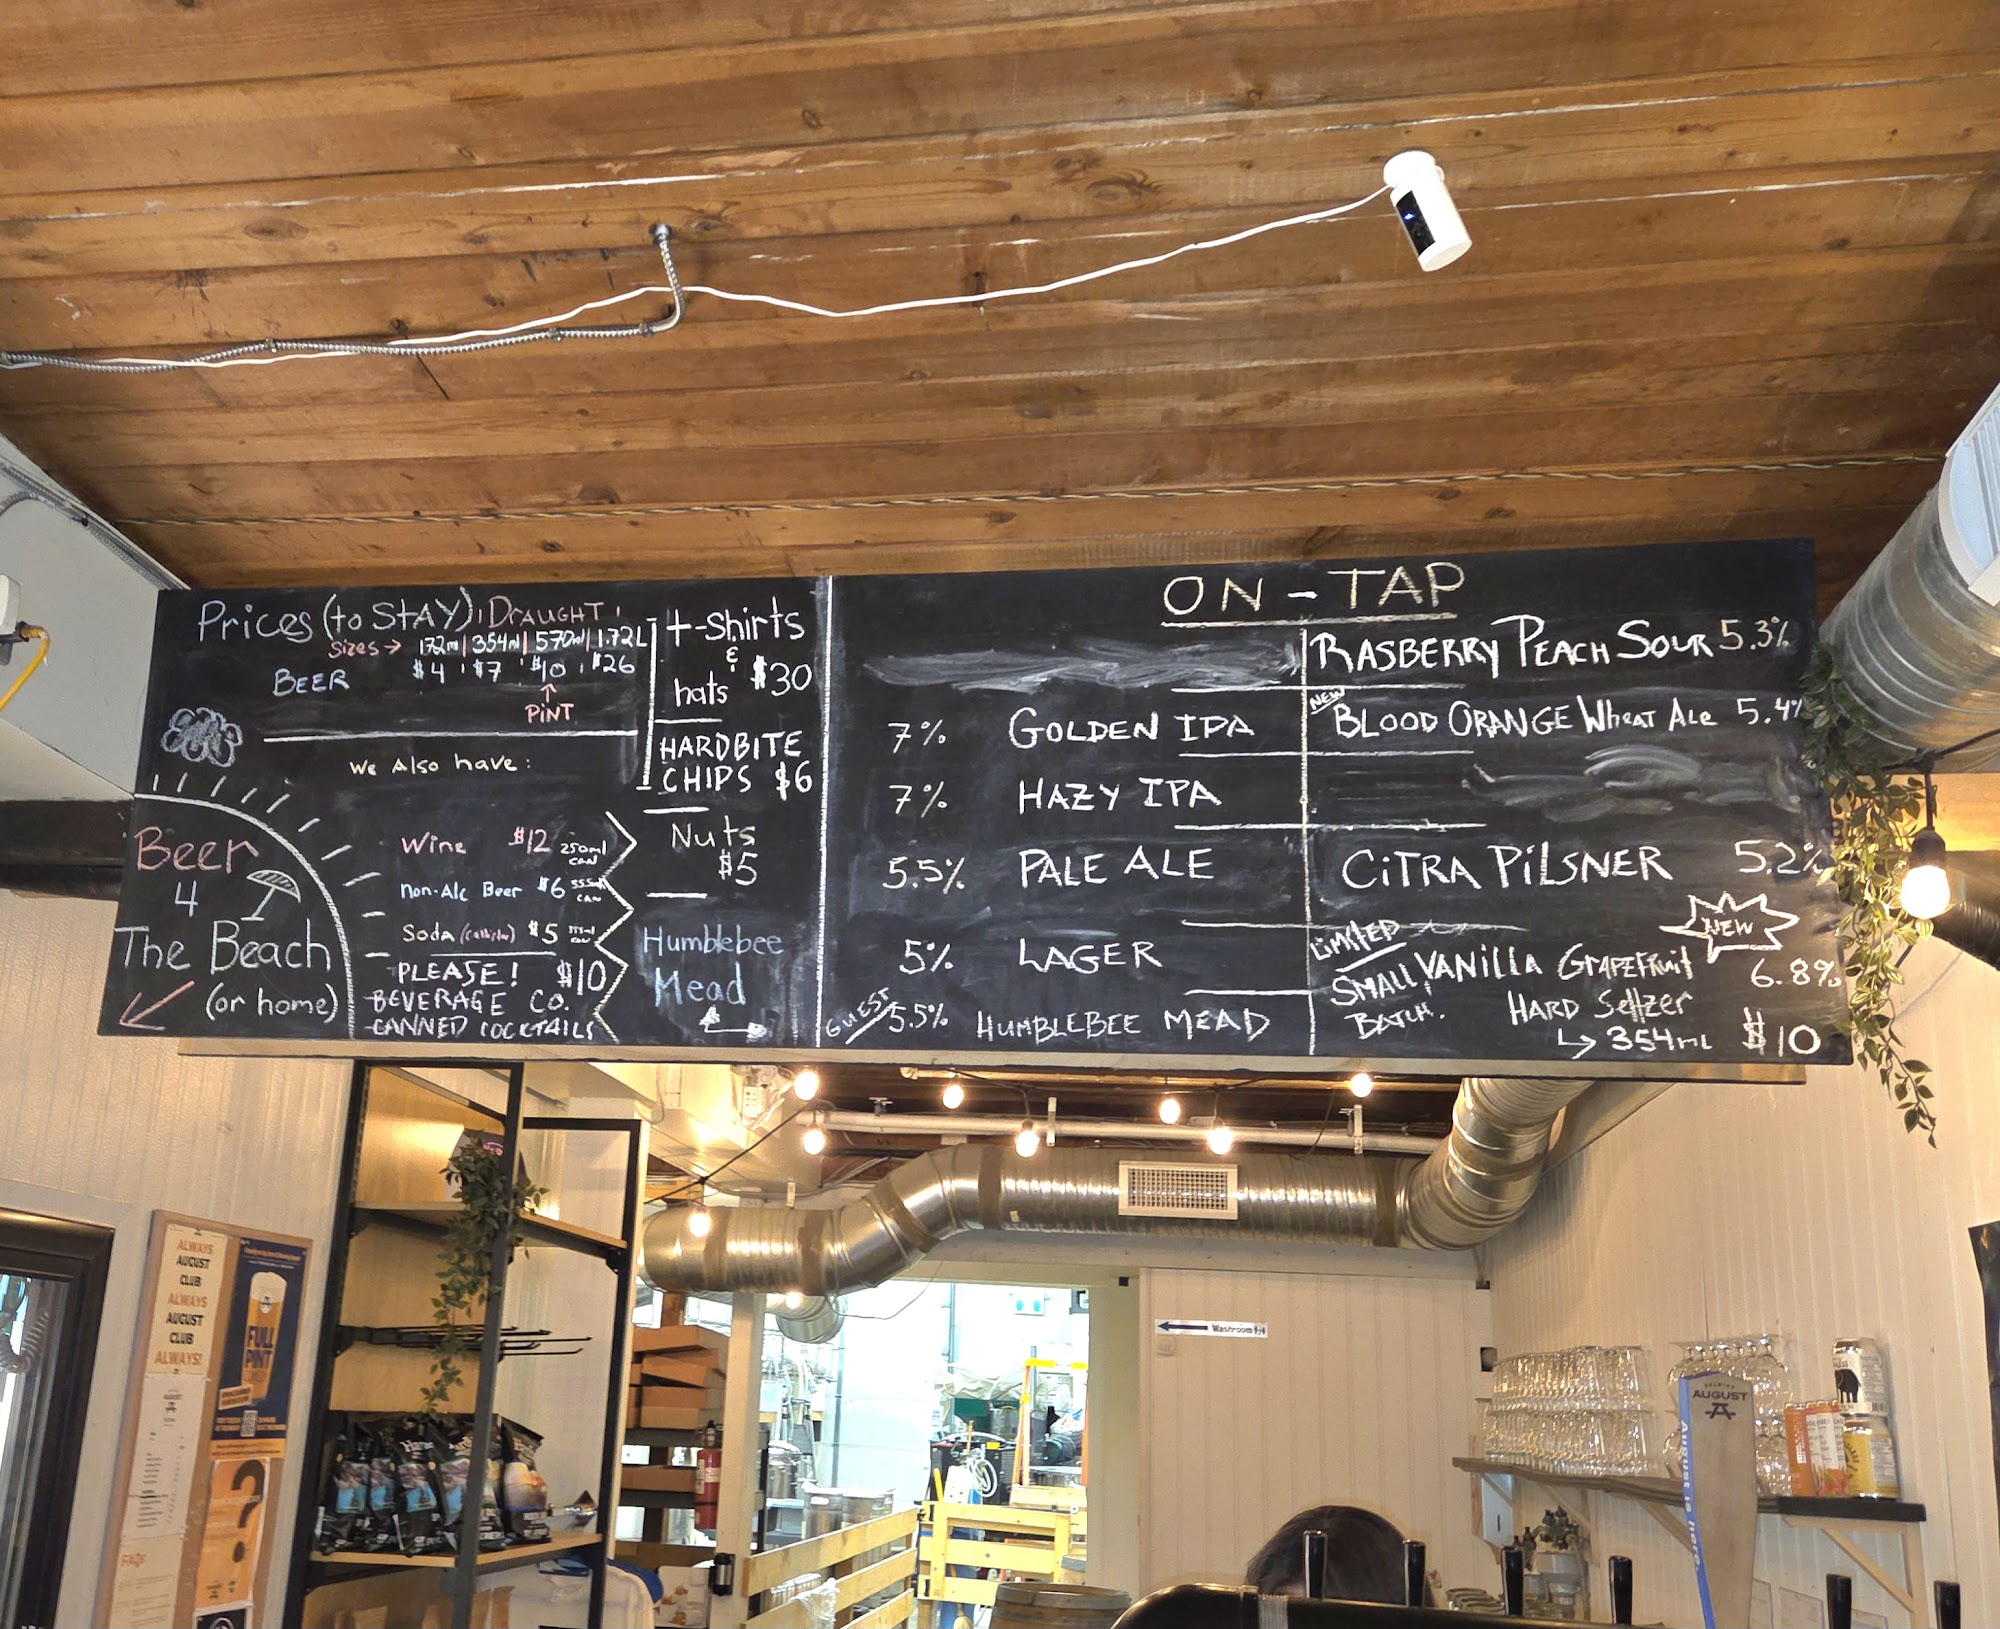 Prices (to STAY) DRAUGHT
Sizes → 172ml | 354ml | 570ml | 1.72L
BEER $4 $7 $10 $26
↑
PINT
We Also have:
Wine $12 250ml CAN
Non-Alc Beer $6 355ml CAN
Soda $5 355ml CAN
PLEASE! $10
BEVERAGE CO.
CANNED COCKTAILS
Beer
4
The Beach
(or home)
t-shirts
&
hats $30
HARDBITE
CHIPS $6
Nuts
$5
Humblebee
Mead
ON-TAP
7% GOLDEN IPA
7% HAZY IPA
5.5% PALE ALE
5% LAGER
GUEST 5.5% HUMBLEBEE MEAD
RASBERRY PEACH SOUR 5.3%
NEW
BLOOD ORANGE Wheat Ale 5.4%
CiTRA PiLSNER 5.2%
NEW
LiMiTED
SMALL BATCH.
VANillA GRAPEFRuiT 6.8%
HARD Seltzer
↳ 354mL $10
ALWAYS
AUGUST
CLUB
ALWAYS
AUGUST
CLUB
ALWAYS!
FULL
PINT
Washroom
AUGUST
August is here